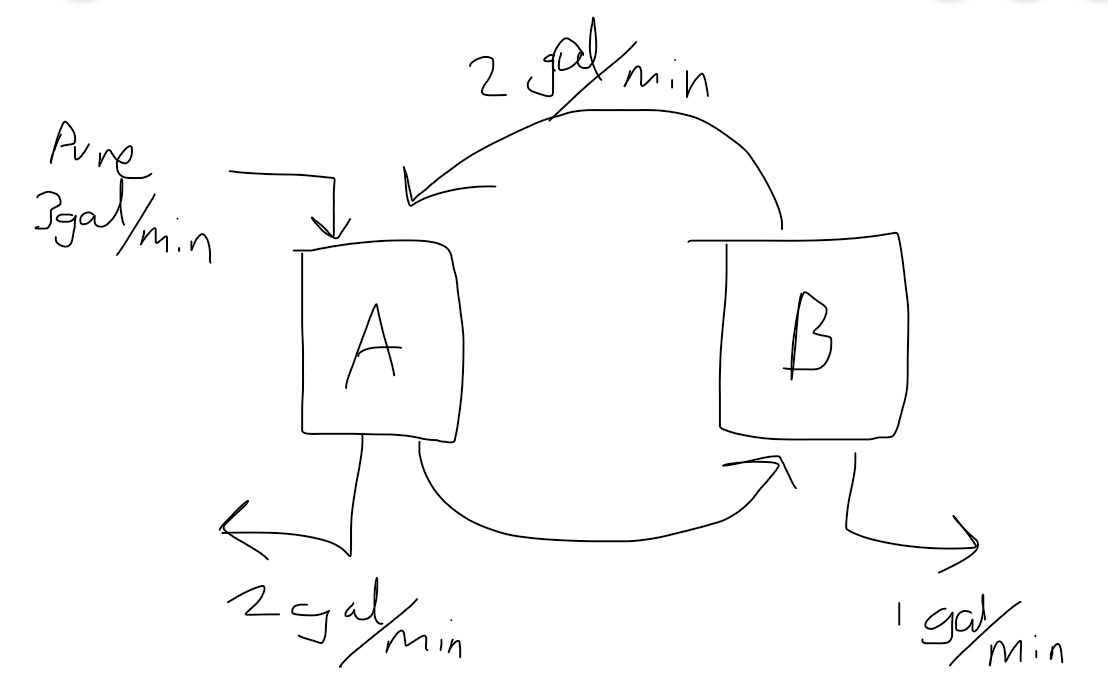 2 gal/min
Pure
3gal/min
A
B
2 gal/min
1 gal/min